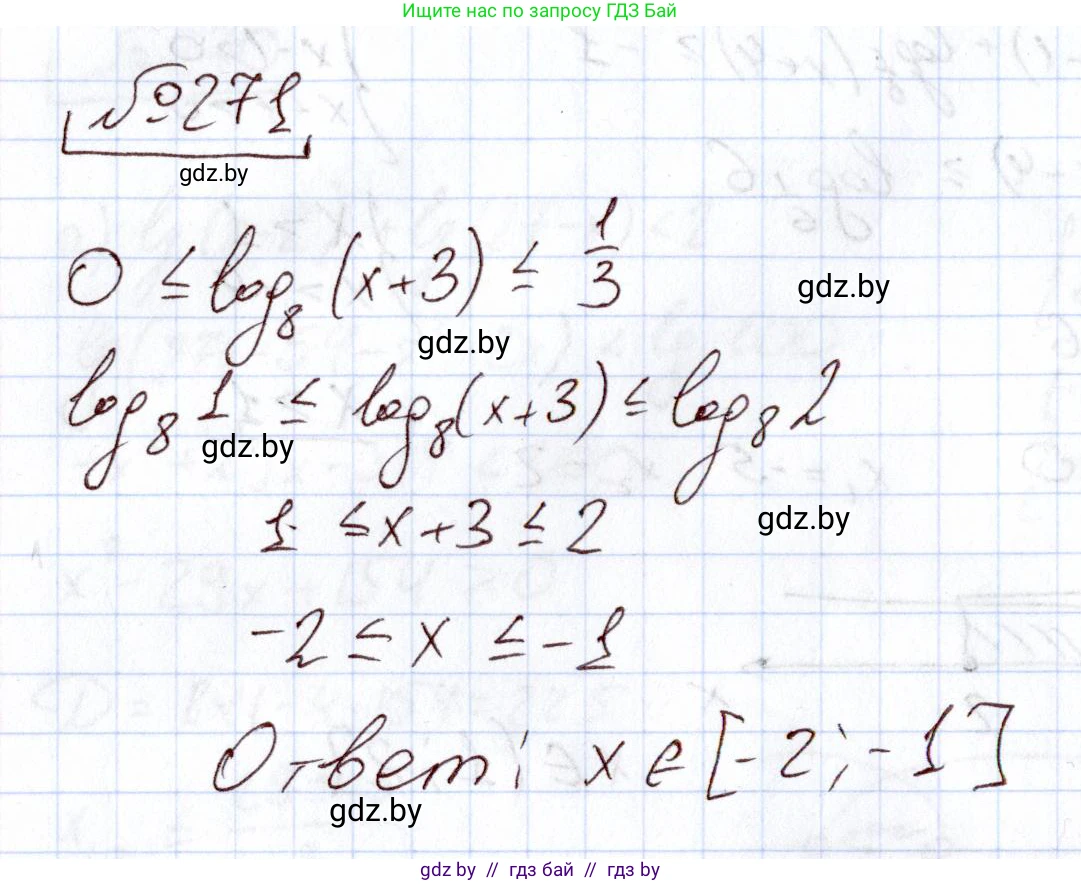 Ищите нас по запросу ГДЗ Бай
№271
gdz.by
0 ≤ log₈(x+3) ≤ 1/3
gdz.by
gdz.by
log₈1 ≤ log₈(x+3) ≤ log₈2
gdz.by
1 ≤ x+3 ≤ 2
gdz.by
-2 ≤ x ≤ -1
Ответ: x ∈ [-2; -1]
gdz.by
gdz by // гдз бай // гдз by